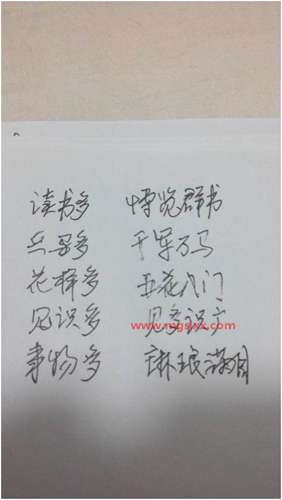 读书多 博览群书
兵马多 千军万马
花样多 五花八门
见识多 见多识广
www.mgswx.com
事物多 琳琅满目